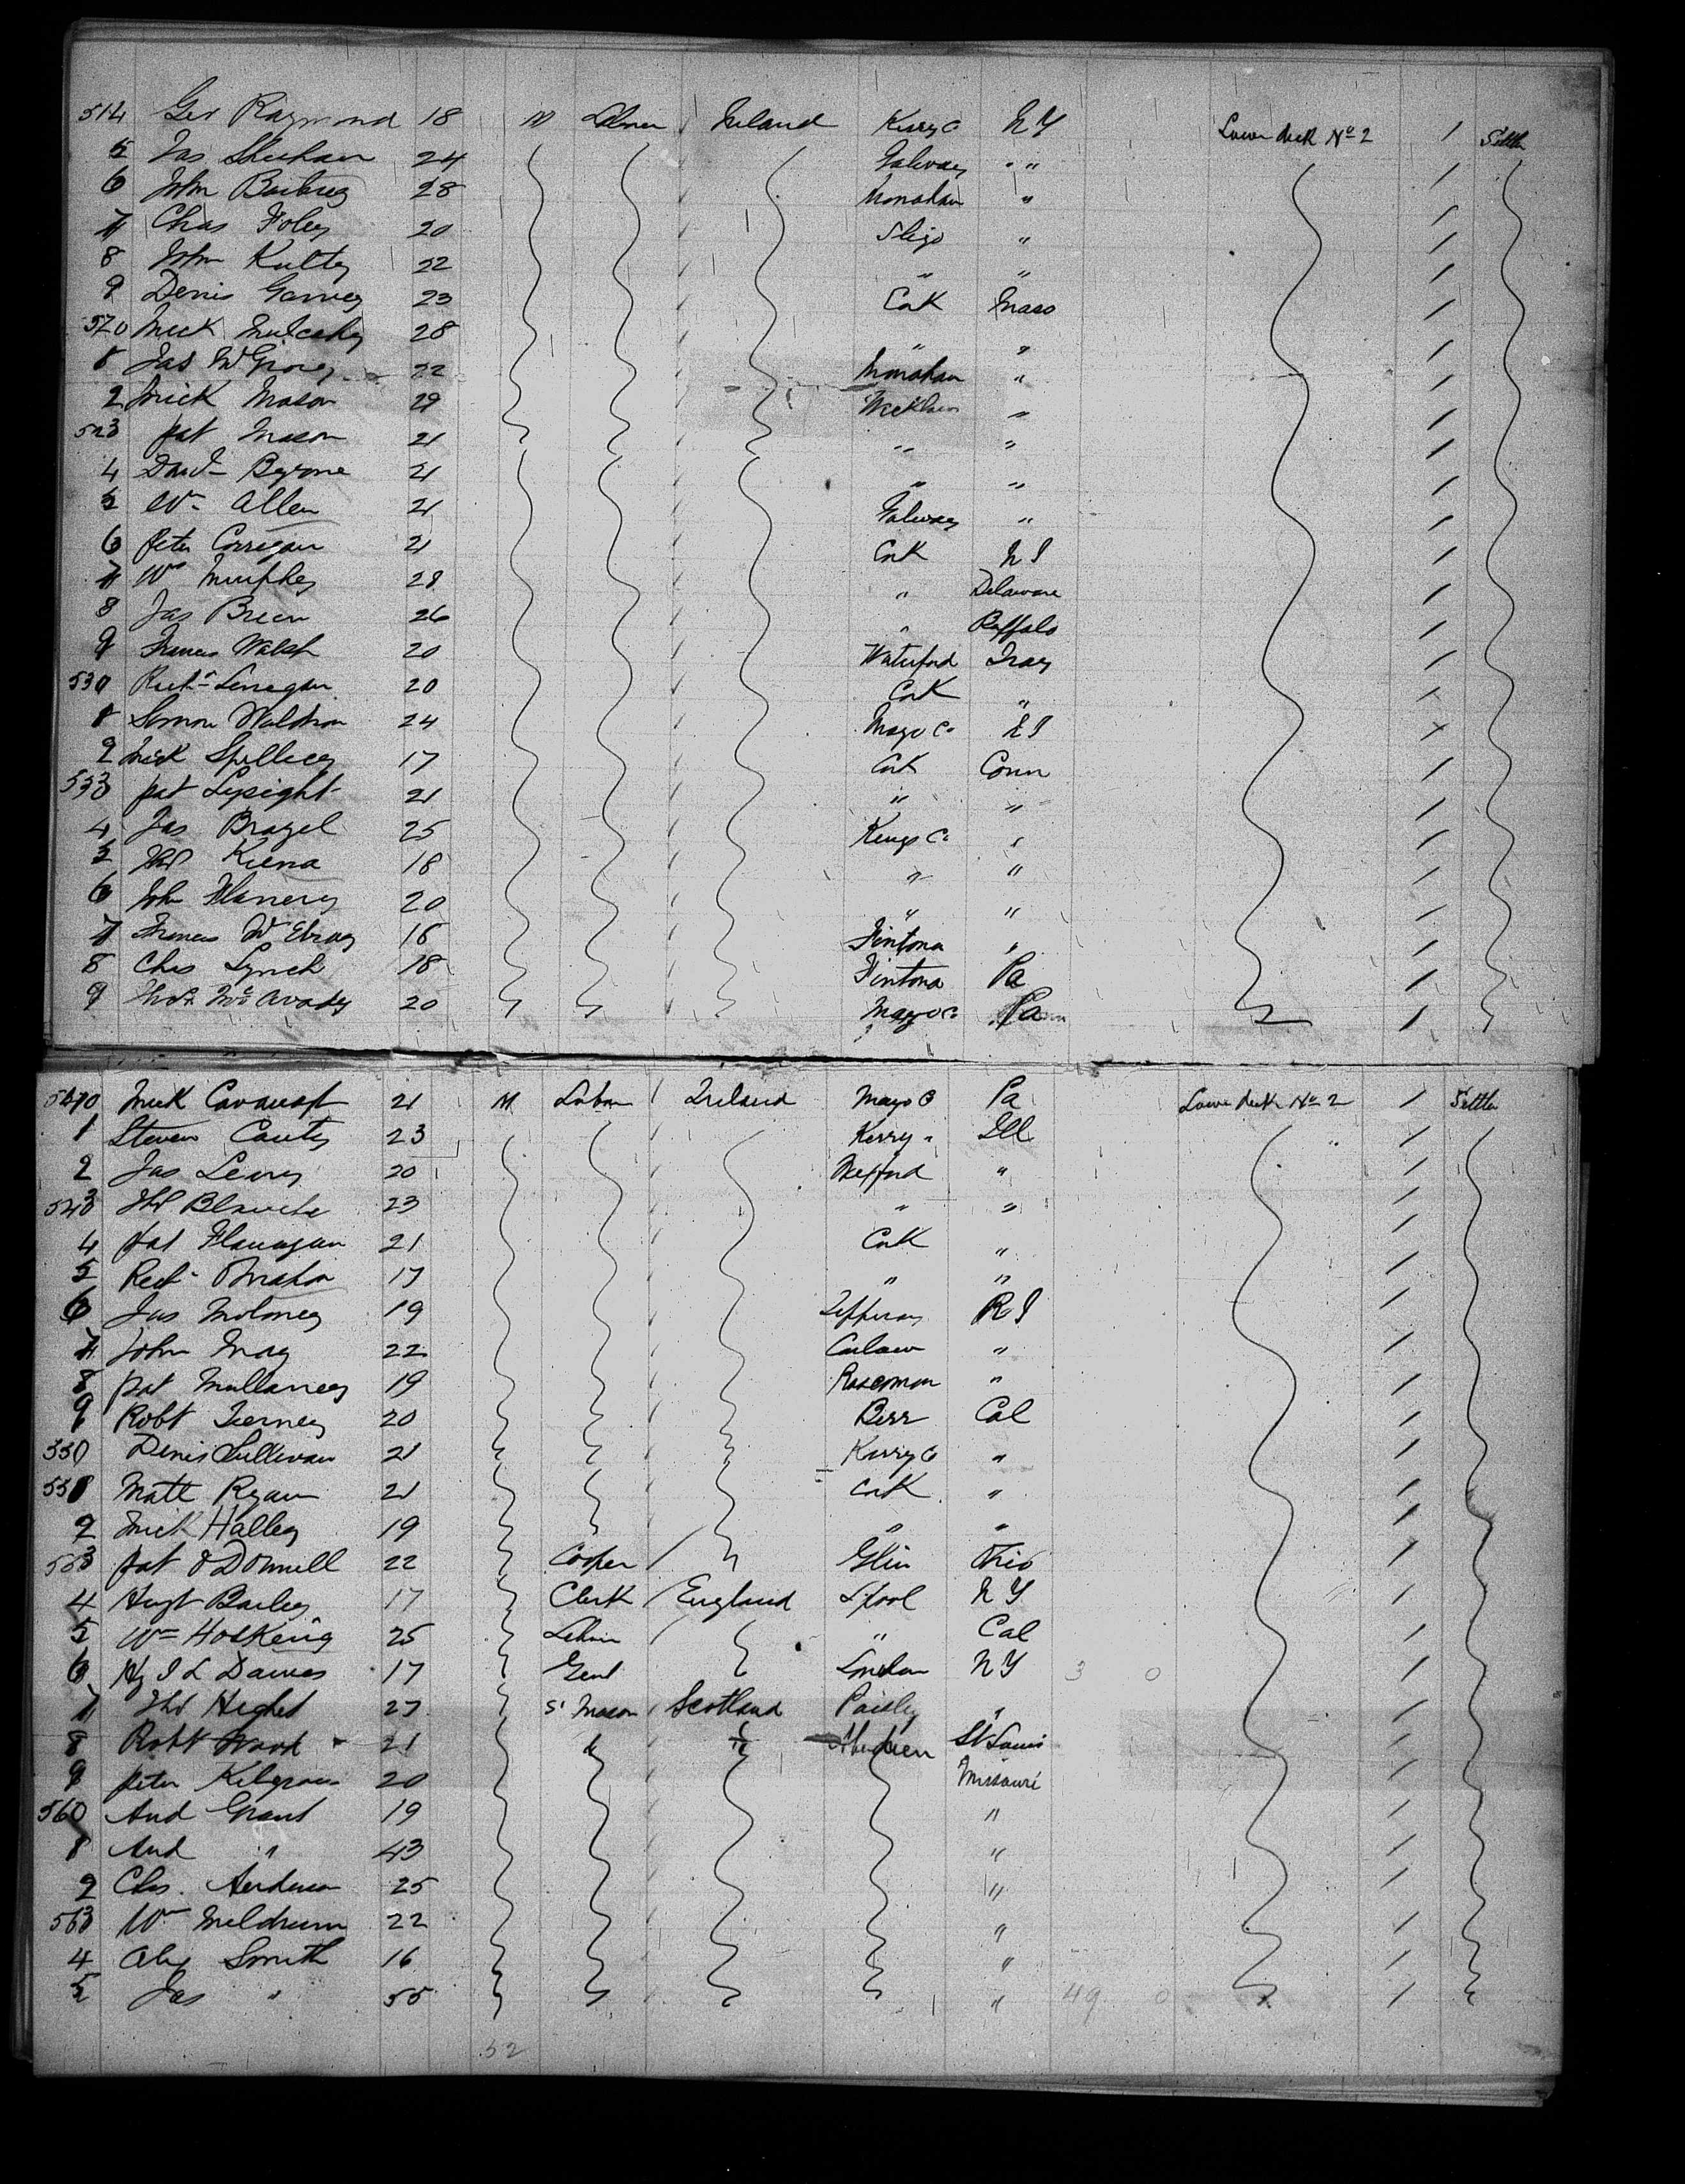 514 Geo Raymond 18 M Labour Ireland Kerry Co N Y Lower deck No 2 / Settler
5 Jas Sheehan 24 Galway " " /
6 John 28 Monahan " /
7 Chas Foley 20 Sligo " /
8 John 22 " " /
9 Denis Garvey 23 Cork Mass /
520 Mick Mulcahy 28 " " /
1 Jas 22 Monahan " /
2 Mick Mason 29 Wicklow " /
523 Pat Mason 21 " " /
4 Davd Byrone 21 " " /
5 Wm Allen 21 Galway " /
6 Peter Corregan 21 Cork /
7 Wm Murphey 28 " Delaware /
8 Jas Breen 26 " Buffalo /
9 Frances Walsh 20 Waterford Troy /
530 Richd Linegan 20 Cork " /
1 Simon Waldron 24 Mayo Co /
2 Mick Spillecy 17 Cork Conn /
533 Pat Lysight 21 " " /
4 Jas Brazel 25 Kings Co " /
5 Thos Kiena 18 " " /
6 John Flanery 20 " " /
7 Frances 16 Fintona " /
8 Chas Lynch 18 Fintona Pa /
9 Thos 20 Mayo Co Pa /
540 Mick Cavanagh 21 M Labour / Ireland Mayo Co Pa Lower deck No 2 / Settler
1 Steven Canty 23 Kerry " Ill " /
2 Jas Leary 20 Wexford " /
543 Thos 23 " " /
4 Pat Flanagan 21 Cork " /
5 Richd 17 " " /
6 Jas Moloney 19 R I /
7 John May 22 Carlow " /
8 Pat Mullaney 19 Roscomon " /
9 Robt Tierney 20 Birr Cal /
550 Denis Sullivan 21 Kerry Co " /
551 Matt Ryan 21 Cork " /
2 Mick Halley 19 " " /
553 Pat O Donnell 22 Cooper / Glin Ohio /
4 Bailey 17 Clerk / England Lpool N Y /
5 Wm Hosking 25 / " Cal /
6 Hy I L Davies 17 Gent London N Y 3 0 /
7 Thos Hight 27 S Mason / Scotland Paisley " /
8 Robt Wood 21 " " Aberdeen St Louis /
9 Peter 20 Missouri /
560 And Grant 19 " /
1 And " 43 " /
2 Chs. Anderson 25 " /
563 Wm Meldrum 22 " /
4 Alex Smith 16 " /
5 Jas " 55 " 49 0 /
52